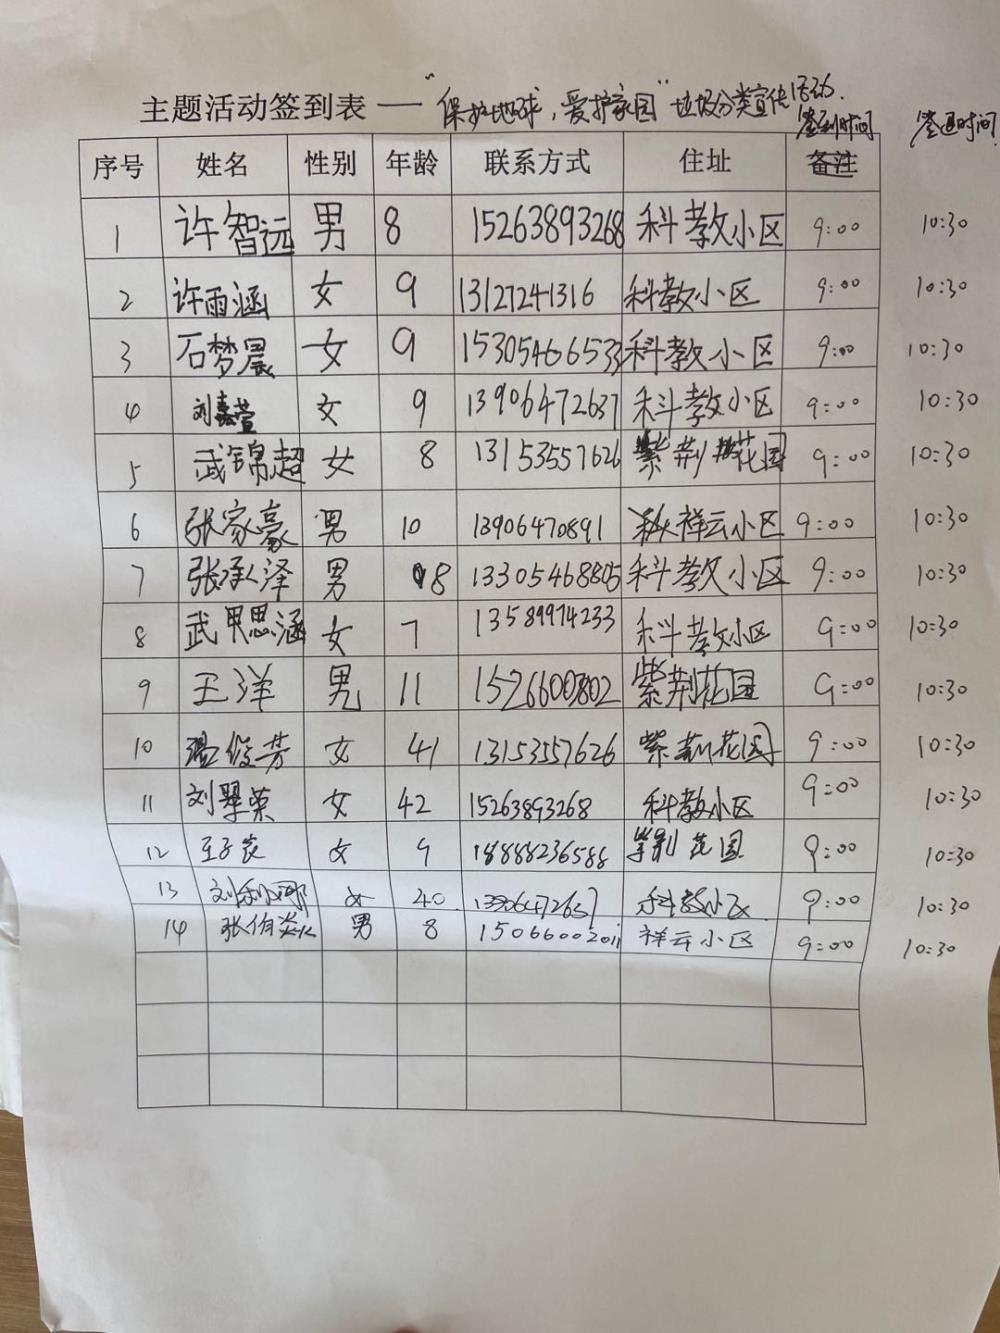 主题活动签到表——"保护地球，爱护家园"垃圾分类宣传活动.
序号 姓名 性别 年龄 联系方式 住址 签到时间 备注 签退时间
1 许智远 男 8 15263893268 科教小区 9:00 10:30
2 许雨涵 女 9 13127241316 科教小区 9:00 10:30
3 石梦晨 女 9 15305466533 科教小区 9:00 10:30
4 刘嘉萱 女 9 13906472637 科教小区 9:00 10:30
5 武锦超 女 8 13153557626 紫荆花园 9:00 10:30
6 张家豪 男 10 13906470891 祥云小区 9:00 10:30
7 张承泽 男 8 13305468805 科教小区 9:00 10:30
8 武思涵 女 7 13589974233 科教小区 9:00 10:30
9 王洋 男 11 1526600802 紫荆花园 9:00 10:30
10 俊芳 女 41 13153557626 紫荆花园 9:00 10:30
11 刘翠荣 女 42 15263893268 科教小区 9:00 10:30
12 王子 女 9 18888236588 紫荆花园 9:00 10:30
13 刘 女 40 13906472637 科教小区 9:00 10:30
14 张 男 8 15066002011 祥云小区 9:00 10:30